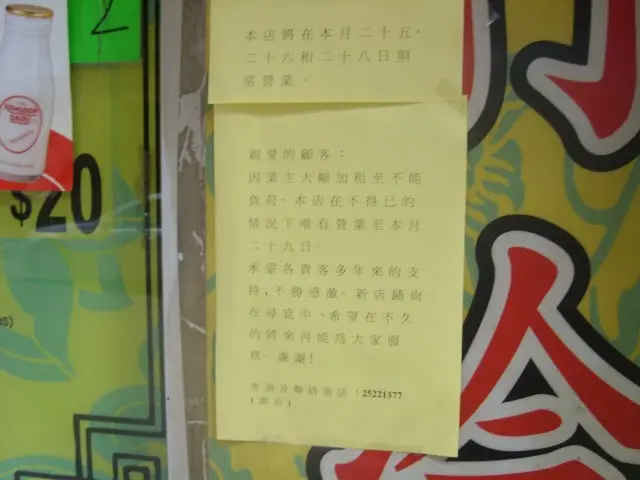 本店將在本月二十五，
二十六和二十八日照
常營業。
親愛的顧客：
因業主大幅加租至不能
負荷。本店在不得已的
情況下唯有營業至本月
二十九日。
承蒙各貴客多年來的支
持，不勝感激。新店鋪尚
在尋覓中，希望在不久
的將來再能為大家服
務。謝謝！
查詢及聯絡電話：25221377
KOWLOON
DAIRY
$20
2